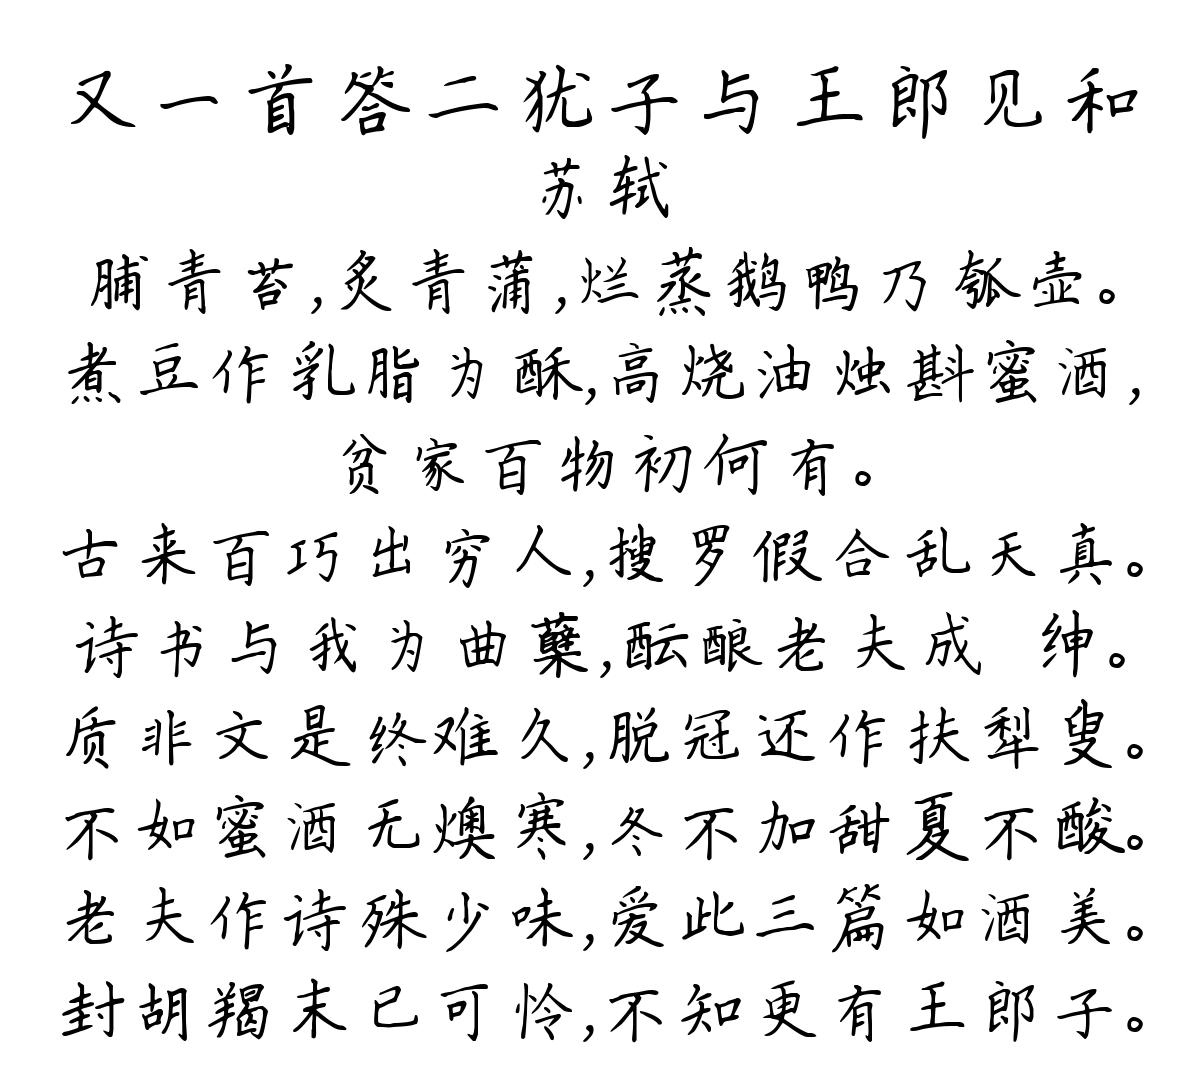 又一首答二犹子与王郎见和
苏轼
脯青苔,炙青蒲,烂蒸鹅鸭乃瓠壶。
煮豆作乳脂为酥,高烧油烛斟蜜酒,
贫家百物初何有。
古来百巧出穷人,搜罗假合乱天真。
诗书与我为曲蘖,酝酿老夫成 绅。
质非文是终难久,脱冠还作扶犁叟。
不如蜜酒无燠寒,冬不加甜夏不酸。
老夫作诗殊少味,爱此三篇如酒美。
封胡羯末已可怜,不知更有王郎子。